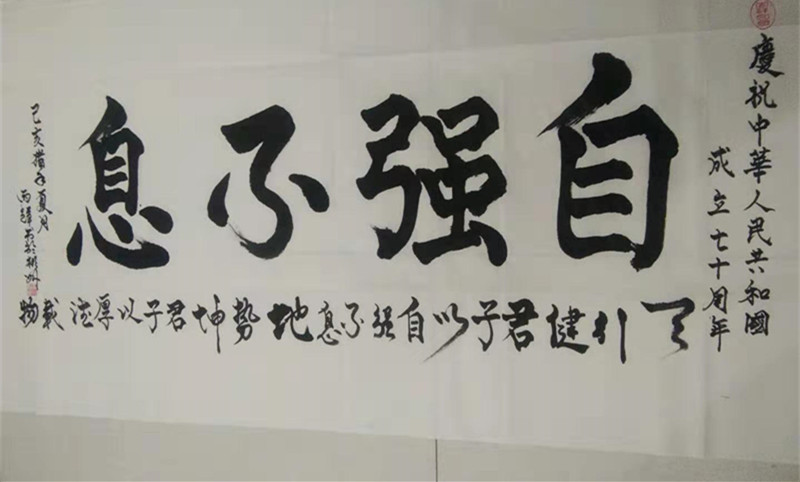 慶祝中華人民共和國
成立七十周年
自强不息
天行健君子以自强不息地势坤君子以厚德载物
己亥猪年夏月